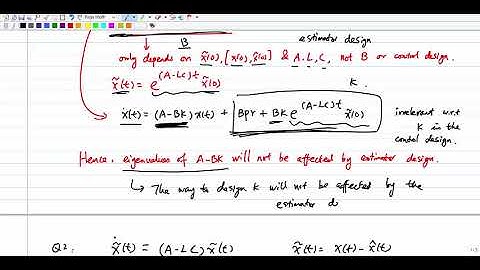 B
estimator design
only depends on x̃(0), [x(0), x̂(0)] & A, L, C, not B or control design.
x̃(t) = e^{(A-LC)t} x̃(0)
K.
ẋ(t) = (A-BK) x(t) + Bpr + BK e^{(A-LC)t} x̃(0)
irrelevant w.r.t
K in the
control design.
Hence, eigenvalues of A-BK will not be affected by estimator design.
↳ The way to design K will not be affected by the
estimator d
Q2: x̃̇(t) = (A-LC) x̃(t) x̃(t) = x(t) - x̂(t)